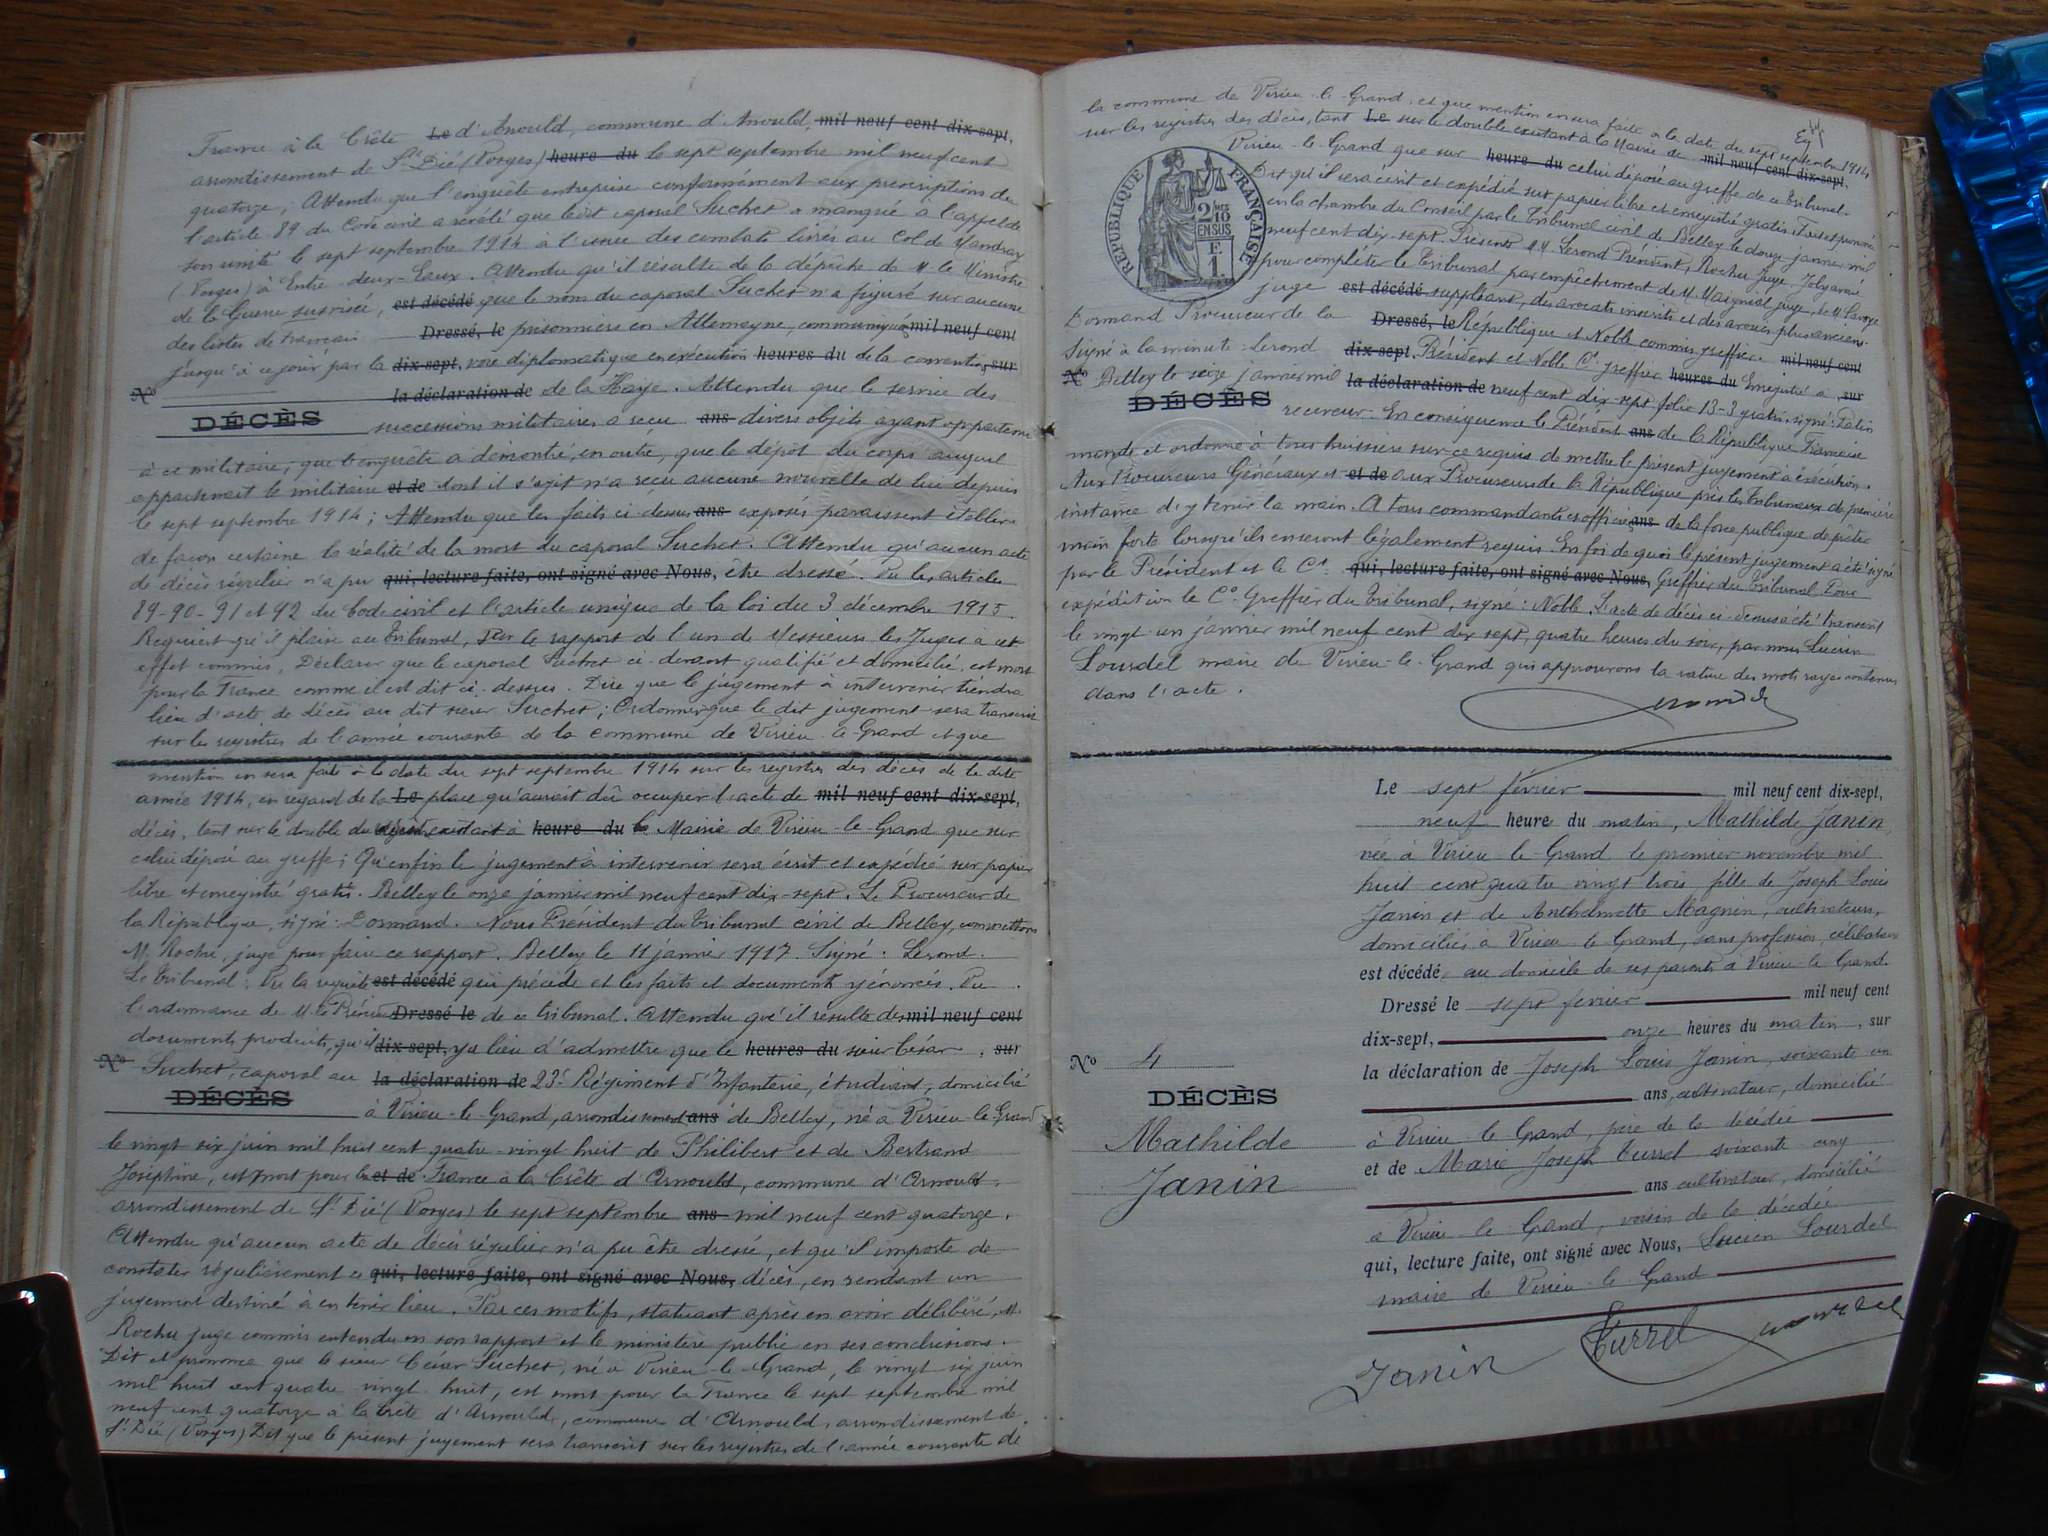 France à la Crête Le d'Anould, commune d'Anould, mil neuf cent dix-sept,
arrondissement de St Dié (Vosges) heure du le sept septembre mil neuf cent
quatorze, Attendu que l'enquête entreprise conformément aux prescriptions de
l'article 89 du Code civil a révélé que ledit caporal Suchet a manqué à l'appel de
son unité le sept septembre 1914 à l'issue des combats livrés au Col de Mandray
(Vosges) à Entre-deux-Eaux. Attendu qu'il résulte de la dépêche de M. le Ministre
de la Guerre susvisée, est décédé que le nom du caporal Suchet n'a figuré sur aucune
des listes de français Dressé, le prisonniers en Allemagne, communiqués mil neuf cent
jusqu'à ce jour par la dix-sept, voie diplomatique en exécution heures du de la convention sur
No la déclaration de de la Haye. Attendu que le service des
DÉCÈS successions militaires a reçu ans divers objets ayant appartenu
à ce militaire, que l'enquête a démontré, en outre, que le dépôt du corps auquel
appartenait le militaire et de dont il s'agit n'a reçu aucune nouvelle de lui depuis
le sept septembre 1914; Attendu que les faits ci-dessus ans exposés paraissent établir
de façon certaine la réalité de la mort du caporal Suchet. Attendu qu'aucun acte
de décès régulier n'a pu qui, lecture faite, ont signé avec Nous, être dressé. Vu les articles
89-90-91 et 92 du Code civil et l'article unique de la loi du 3 décembre 1915.
Requiert qu'il plaise au Tribunal, sur le rapport de l'un de Messieurs les Juges à cet
effet commis, Déclarer que le caporal Suchet ci-devant qualifié et domicilié, est mort
pour la France comme il est dit ci-dessus. Dire que le jugement à intervenir tiendra
lieu d'acte de décès au dit sieur Suchet; Ordonner que le dit jugement sera transcrit
sur les registres de l'année courante de la commune de Virieu-le-Grand et que
mention en sera faite à la date du sept septembre 1914 sur les registres des décès de la dite
année 1914, en regard de la Le place qu'aurait dû occuper l'acte de mil neuf cent dix-sept,
décès, tant sur le double du existant à heure du la Mairie de Virieu-le-Grand que sur
celui déposé au greffe; Qu'enfin le jugement à intervenir sera écrit et expédié sur papier
libre et enregistré gratis. Belley le onze janvier mil neuf cent dix-sept. Le Procureur de
la République, signé: Dormand. Nous Président du Tribunal civil de Belley, commettons
M. Rochu, juge pour faire ce rapport. Belley le 11 janvier 1917. Signé: Lerond.
Le Tribunal: Vu la requête est décédé qui précède et les faits et documents y énoncés. Vu
l'ordonnance de M. le Président Dressé le de ce tribunal. Attendu qu'il résulte des mil neuf cent
documents produits, qu'il dix-sept, y a lieu d'admettre que le heures du sieur César, sur
No Suchet, caporal au la déclaration de 23e Régiment d'Infanterie, étudiant, domicilié
DÉCÈS à Virieu-le-Grand, arrondissement ans de Belley, né à Virieu-le-Grand
le vingt six juin mil huit cent quatre-vingt huit de Philibert et de Bertrand
Joséphine, est mort pour la et de France à la Crête d'Arnould, commune d'Arnould,
arrondissement de St Dié (Vosges) le sept septembre ans mil neuf cent quatorze.
Attendu qu'aucun acte de décès régulier n'a pu être dressé, et qu'il importe de
constater régulièrement ce qui, lecture faite, ont signé avec Nous, décès, en rendant un
jugement destiné à en tenir lieu. Par ces motifs, statuant après en avoir délibéré, M.
Rochu juge commis entendu en son rapport et le ministère public en ses conclusions.
Dit et prononce que le sieur César Suchet, né à Virieu-le-Grand, le vingt six juin
mil huit cent quatre vingt huit, est mort pour la France le sept septembre mil
neuf cent quatorze à la Crête d'Arnould, commune d'Arnould, arrondissement de
St Dié (Vosges) Dit que le présent jugement sera transcrit sur les registres de l'année courante de
la commune de Virieu-le-Grand, et que mention en sera faite à la date du sept septembre 1914
sur les registres des décès, tant Le sur le double existant à la Mairie de mil neuf cent dix-sept,
Virieu-le-Grand que sur heure du celui déposé au greffe de ce Tribunal.
RÉPUBLIQUE FRANÇAISE
2/10 EN SUS
F. 1.
Dit qu'il sera écrit et expédié sur papier libre et enregistré gratis. Fait et prononcé
en la chambre du Conseil par le Tribunal civil de Belley le douze janvier mil
neuf cent dix-sept. Présents M.M. Lerond Président, Rochu Juge, Joly avoué
pour compléter le Tribunal par empêchement de M. Maigniol juge, de M. Savoye
juge est décédé suppléant, des avocats inscrits et des avoués plus anciens.
Dormand Procureur de la Dressé, le République et Noble commis greffier. mil neuf cent
Signé à la minute Lerond dix-sept, Président et Noble Cs greffier heures du Enregistré à, sur
No Belley le seize janvier mil la déclaration de neuf cent dix-sept folio 13-3 gratis, signé: Patin
DÉCÈS receveur. En conséquence le Président ans de la République Française
mande et ordonne à tous huissiers sur ce requis de mettre le présent jugement à exécution.
Aux Procureurs Généraux et et de aux Procureurs de la République près les Tribunaux de première
instance d'y tenir la main. A tous commandants et officiers ans de la force publique de prêter
main forte lorsqu'ils en seront légalement requis. En foi de quoi le présent jugement a été signé
par le Président et le Cs qui, lecture faite, ont signé avec Nous, Greffier du Tribunal Pour
expédition le Cs Greffier du Tribunal, signé: Noble. L'acte de décès ci-dessus a été transcrit
le vingt-un janvier mil neuf cent dix sept, quatre heures du soir, par nous Lucien
Lourdel maire de Virieu-le-Grand qui approuvons la rature des mots rayés contenus
dans l'acte.
Le sept février mil neuf cent dix-sept,
neuf heure du matin, Mathilde Janin,
née à Virieu-le-Grand le premier novembre mil
huit cent quatre vingt trois fille de Joseph Louis
Janin et de Anthelmette Magnin, cultivateurs,
domiciliés à Virieu-le-Grand, sans profession, célibataire
est décédée au domicile de ses parents à Virieu-le-Grand.
Dressé le sept février mil neuf cent
dix-sept, onze heures du matin, sur
la déclaration de Joseph Louis Janin, soixante un
ans, cultivateur, domicilié
à Virieu-le-Grand, père de la décédée
et de Marie Joseph Turrel soixante cinq
ans cultivateur, domicilié
à Virieu-le-Grand, voisin de la décédée
qui, lecture faite, ont signé avec Nous, Lucien Lourdel
maire de Virieu-le-Grand
No 4
DÉCÈS
Mathilde
Janin
Janin Turrel